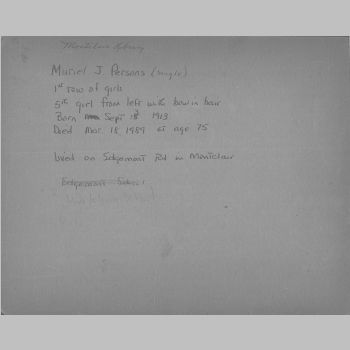 Montclair Library
Muriel J. Persons (single)
1st row of girls
5th girl from left with bow in hair
Born Sept 18 1913
Died Mar. 18 1989 at age 75
Lived on Edgemont Rd in Montclair
Edgemont School